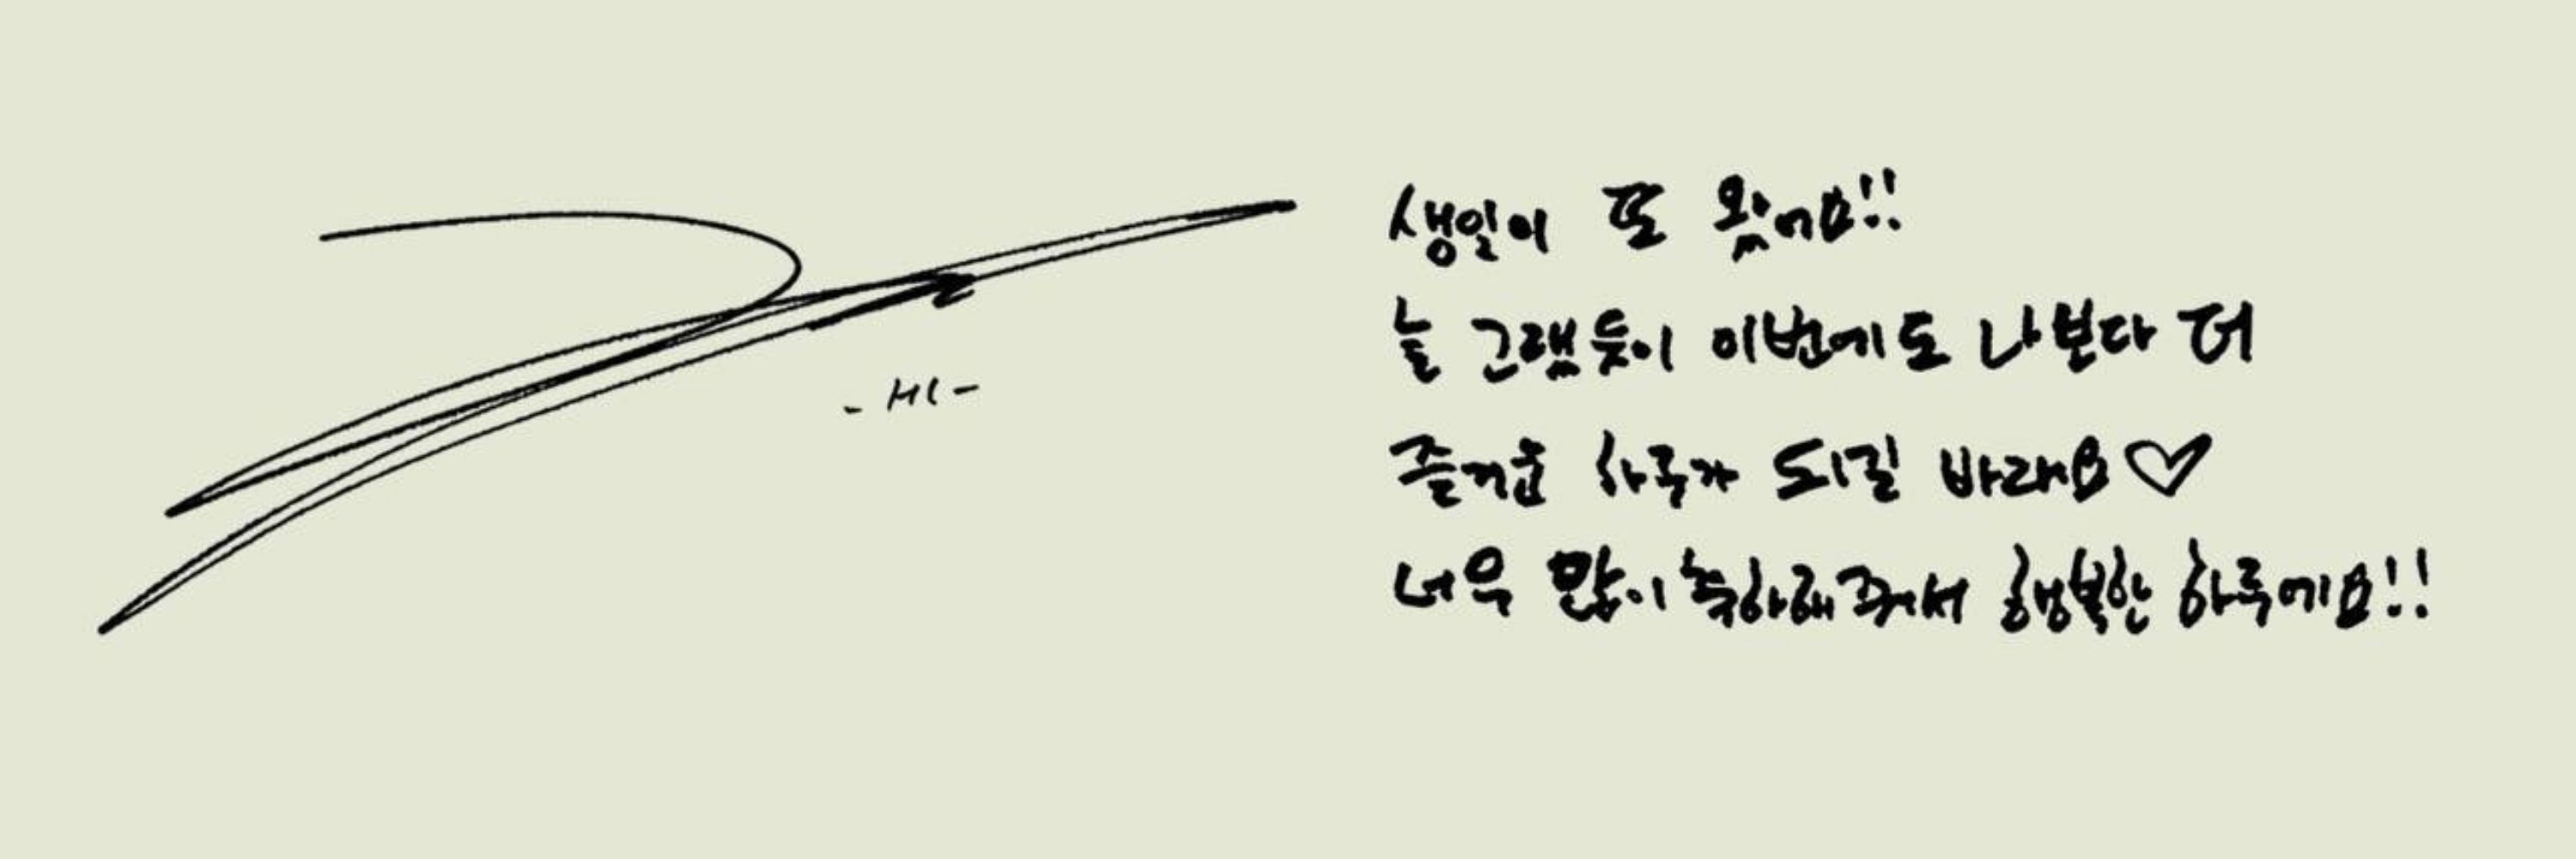 - HI -
생일이 또 왔어요!!
늘 그랬듯이 이번에도 나보다 더
즐거운 하루가 되길 바래요♡
너무 많이 축하해줘서 행복한 하루에요!!